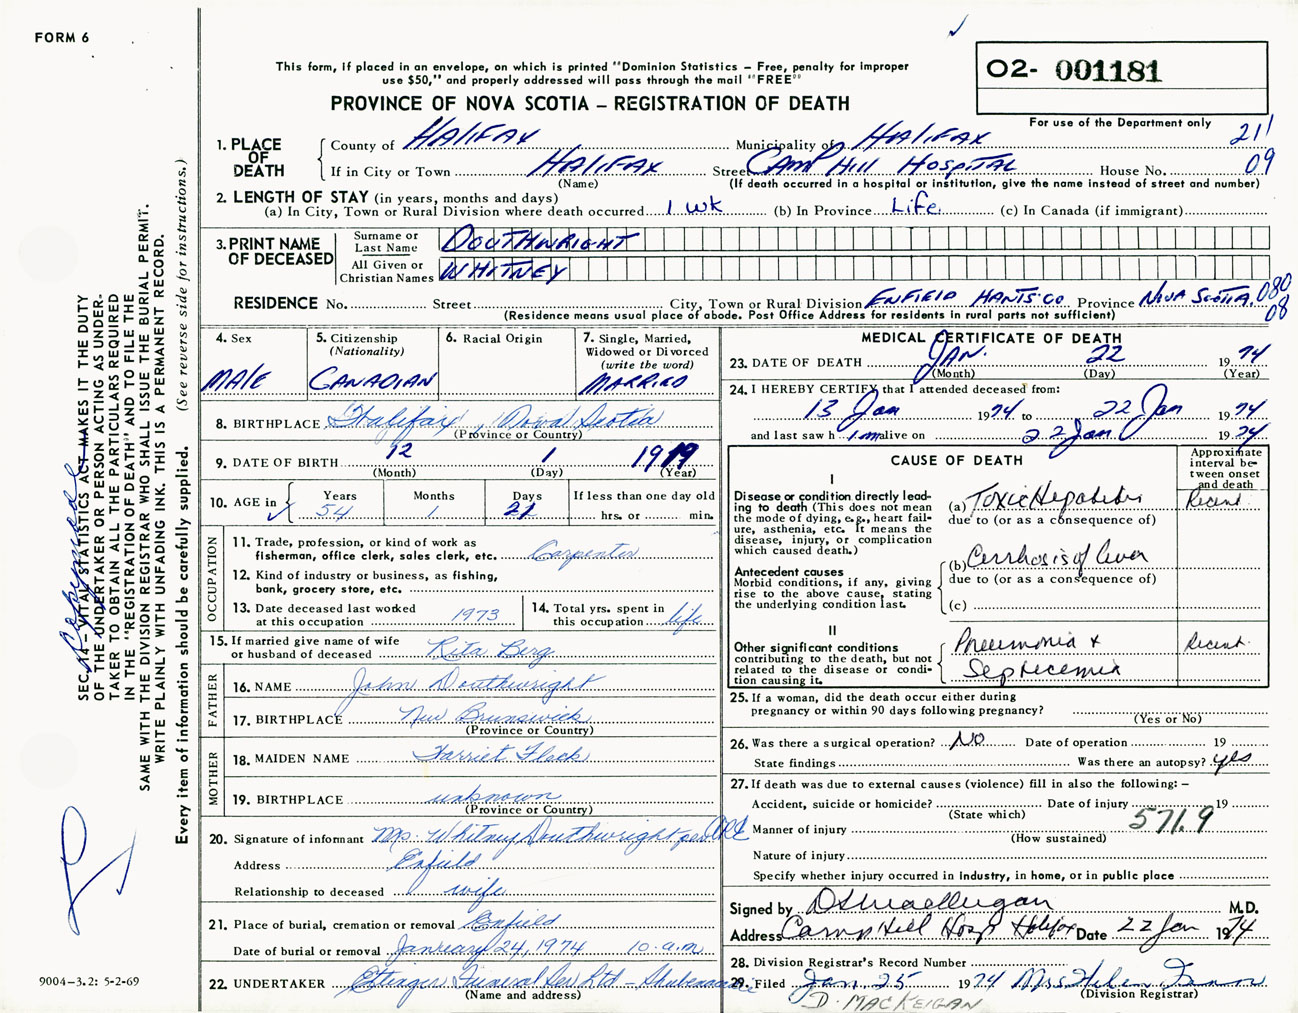 FORM 6
This form, if placed in an envelope, on which is printed "Dominion Statistics – Free, penalty for improper
use $50," and properly addressed will pass through the mail "FREE"
PROVINCE OF NOVA SCOTIA – REGISTRATION OF DEATH
02- 001181
For use of the Department only
1. PLACE OF DEATH County of HALIFAX Municipality of HALIFAX 211
If in City or Town HALIFAX Street CAMP HILL HOSPITAL House No. 09
(Name) (If death occurred in a hospital or institution, give the name instead of street and number)
2. LENGTH OF STAY (in years, months and days)
(a) In City, Town or Rural Division where death occurred 1 wk (b) In Province Life (c) In Canada (if immigrant)
3. PRINT NAME OF DECEASED
Surname or Last Name DOUTHWRIGHT
All Given or Christian Names WHITNEY
RESIDENCE No. Street City, Town or Rural Division ENFIELD HANTS CO Province NOVA SCOTIA 080
08
(Residence means usual place of abode. Post Office Address for residents in rural parts not sufficient)
4. Sex MALE
5. Citizenship (Nationality) CANADIAN
6. Racial Origin
7. Single, Married, Widowed or Divorced (write the word) MARRIED
8. BIRTHPLACE Halifax, Nova Scotia
(Province or Country)
9. DATE OF BIRTH 12 1 1919
(Month) (Day) (Year)
10. AGE in Years 54 Months 1 Days 21 If less than one day old hrs. or min.
OCCUPATION
11. Trade, profession, or kind of work as fisherman, office clerk, sales clerk, etc. Carpenter
12. Kind of industry or business, as fishing, bank, grocery store, etc.
13. Date deceased last worked at this occupation 1973
14. Total yrs. spent in this occupation life
15. If married give name of wife or husband of deceased Rita Berg
FATHER
16. NAME John Douthwright
17. BIRTHPLACE New Brunswick
(Province or Country)
MOTHER
18. MAIDEN NAME Harriet Fleck
19. BIRTHPLACE unknown
(Province or Country)
20. Signature of informant Mrs. Whitney Douthwright per
Address Enfield
Relationship to deceased wife
21. Place of burial, cremation or removal Enfield
Date of burial or removal January 24, 1974 10 a.m.
22. UNDERTAKER Ettinger Funeral Ser Ltd – Shubenacadie
(Name and address)
MEDICAL CERTIFICATE OF DEATH
23. DATE OF DEATH JAN. 22 1974
(Month) (Day) (Year)
24. I HEREBY CERTIFY that I attended deceased from:
13 Jan 1974 to 22 Jan 1974
and last saw h im alive on 22 Jan 1974
CAUSE OF DEATH
Approximate interval between onset and death
I
Disease or condition directly leading to death (This does not mean the mode of dying, e.g., heart failure, asthenia, etc. It means the disease, injury, or complication which caused death.)
(a) Toxic Hepatitis Recent
due to (or as a consequence of)
Antecedent causes
Morbid conditions, if any, giving rise to the above cause, stating the underlying condition last.
(b) Cirrhosis of liver
due to (or as a consequence of)
(c)
II
Other significant conditions contributing to the death, but not related to the disease or condition causing it.
Pneumonia & Recent
Septicemia
25. If a woman, did the death occur either during
pregnancy or within 90 days following pregnancy?
(Yes or No)
26. Was there a surgical operation? No Date of operation 19
State findings Was there an autopsy? yes
27. If death was due to external causes (violence) fill in also the following: –
Accident, suicide or homicide? Date of injury 19
(State which)
Manner of injury 571.9
(How sustained)
Nature of injury
Specify whether injury occurred in industry, in home, or in public place
Signed by M.D.
Address Camp Hill Hosp Halifax Date 22 Jan 1974
28. Division Registrar's Record Number
29. Filed Jan. 25 1974 Mrs Helen
(Division Registrar)
D. MACKEIGAN
SEC. 14 – VITAL STATISTICS ACT MAKES IT THE DUTY
OF THE UNDERTAKER OR PERSON ACTING AS UNDER-
TAKER TO OBTAIN ALL THE PARTICULARS REQUIRED
IN THE "REGISTRATION OF DEATH" AND TO FILE THE
SAME WITH THE DIVISION REGISTRAR WHO SHALL ISSUE THE BURIAL PERMIT.
WRITE PLAINLY WITH UNFADING INK. THIS IS A PERMANENT RECORD.
Every item of information should be carefully supplied. (See reverse side for instructions.)
9004–3.2: 5-2-69